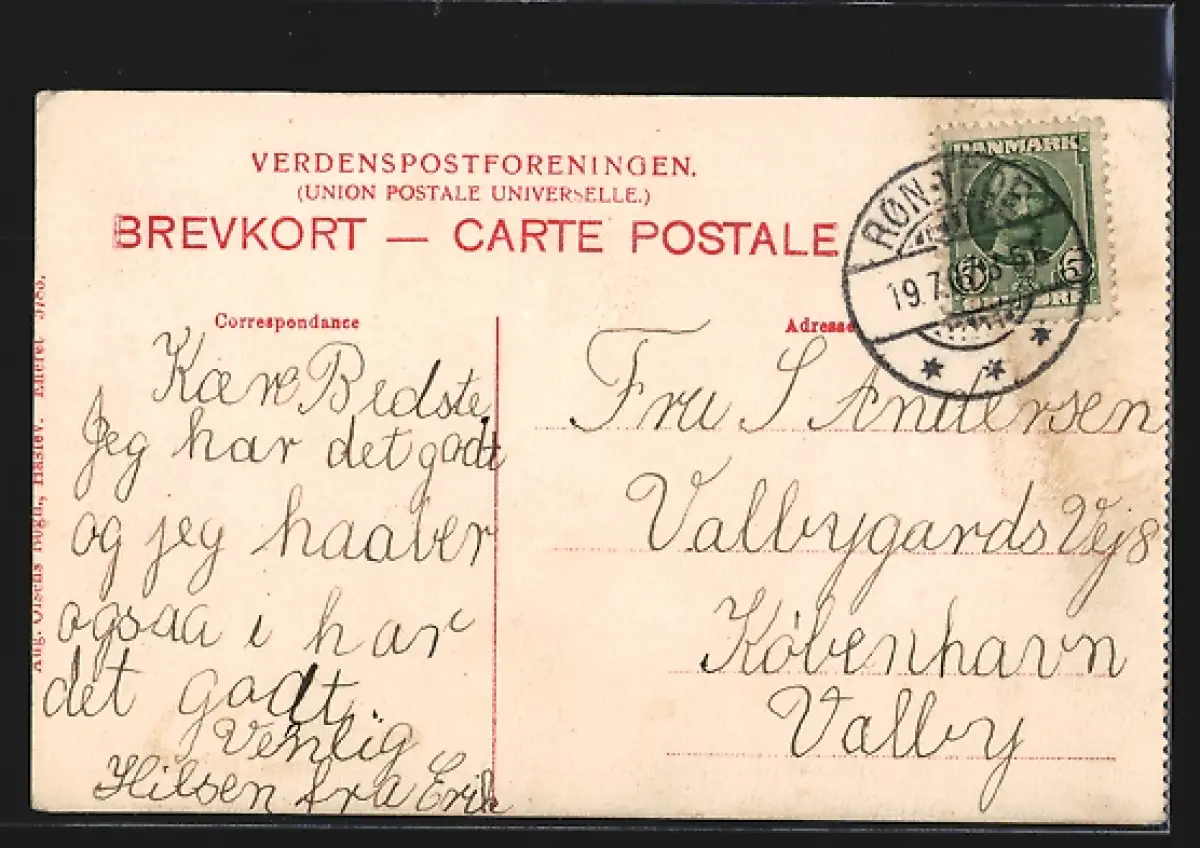 VERDENSPOSTFORENINGEN.
(UNION POSTALE UNIVERSELLE.)
BREVKORT — CARTE POSTALE
DANMARK
5 5
ØRE
RØN
19.7.
Correspondance
Kære Bedste
Jeg har det godt
og jeg haaber
ogsaa i har
det godt
Venlig
Hilsen fra Erik
Adresse
Fru S Andersen
Valbygards Vej 8
København
Valby
Aug. Olsens Bogh., Haslev. Eneret